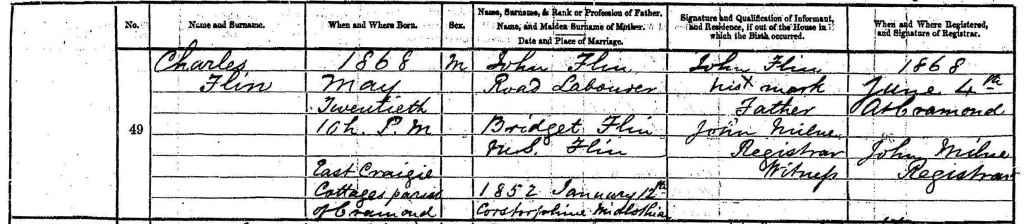 No.
Name and Surname.
When and Where Born.
Sex.
Name, Surname, & Rank or Profession of Father.
Name, and Maiden Surname of Mother.
Date and Place of Marriage.
Signature and Qualification of Informant,
and Residence, if out of the House in
which the Birth occurred.
When and Where Registered,
and Signature of Registrar.
49
Charles
Flin
1868
May
Twentieth
10h. P.M
East Craigie
Cottages parish
of Cramond
M
John Flin
Road Labourer
Bridget Flin
M.S. Flin
1852 January 12th
Corstorphine Midlothian
John Flin
his x mark
Father
John Milne
Registrar
Witness
1868
June 4th
At Cramond
John Milne
Registrar